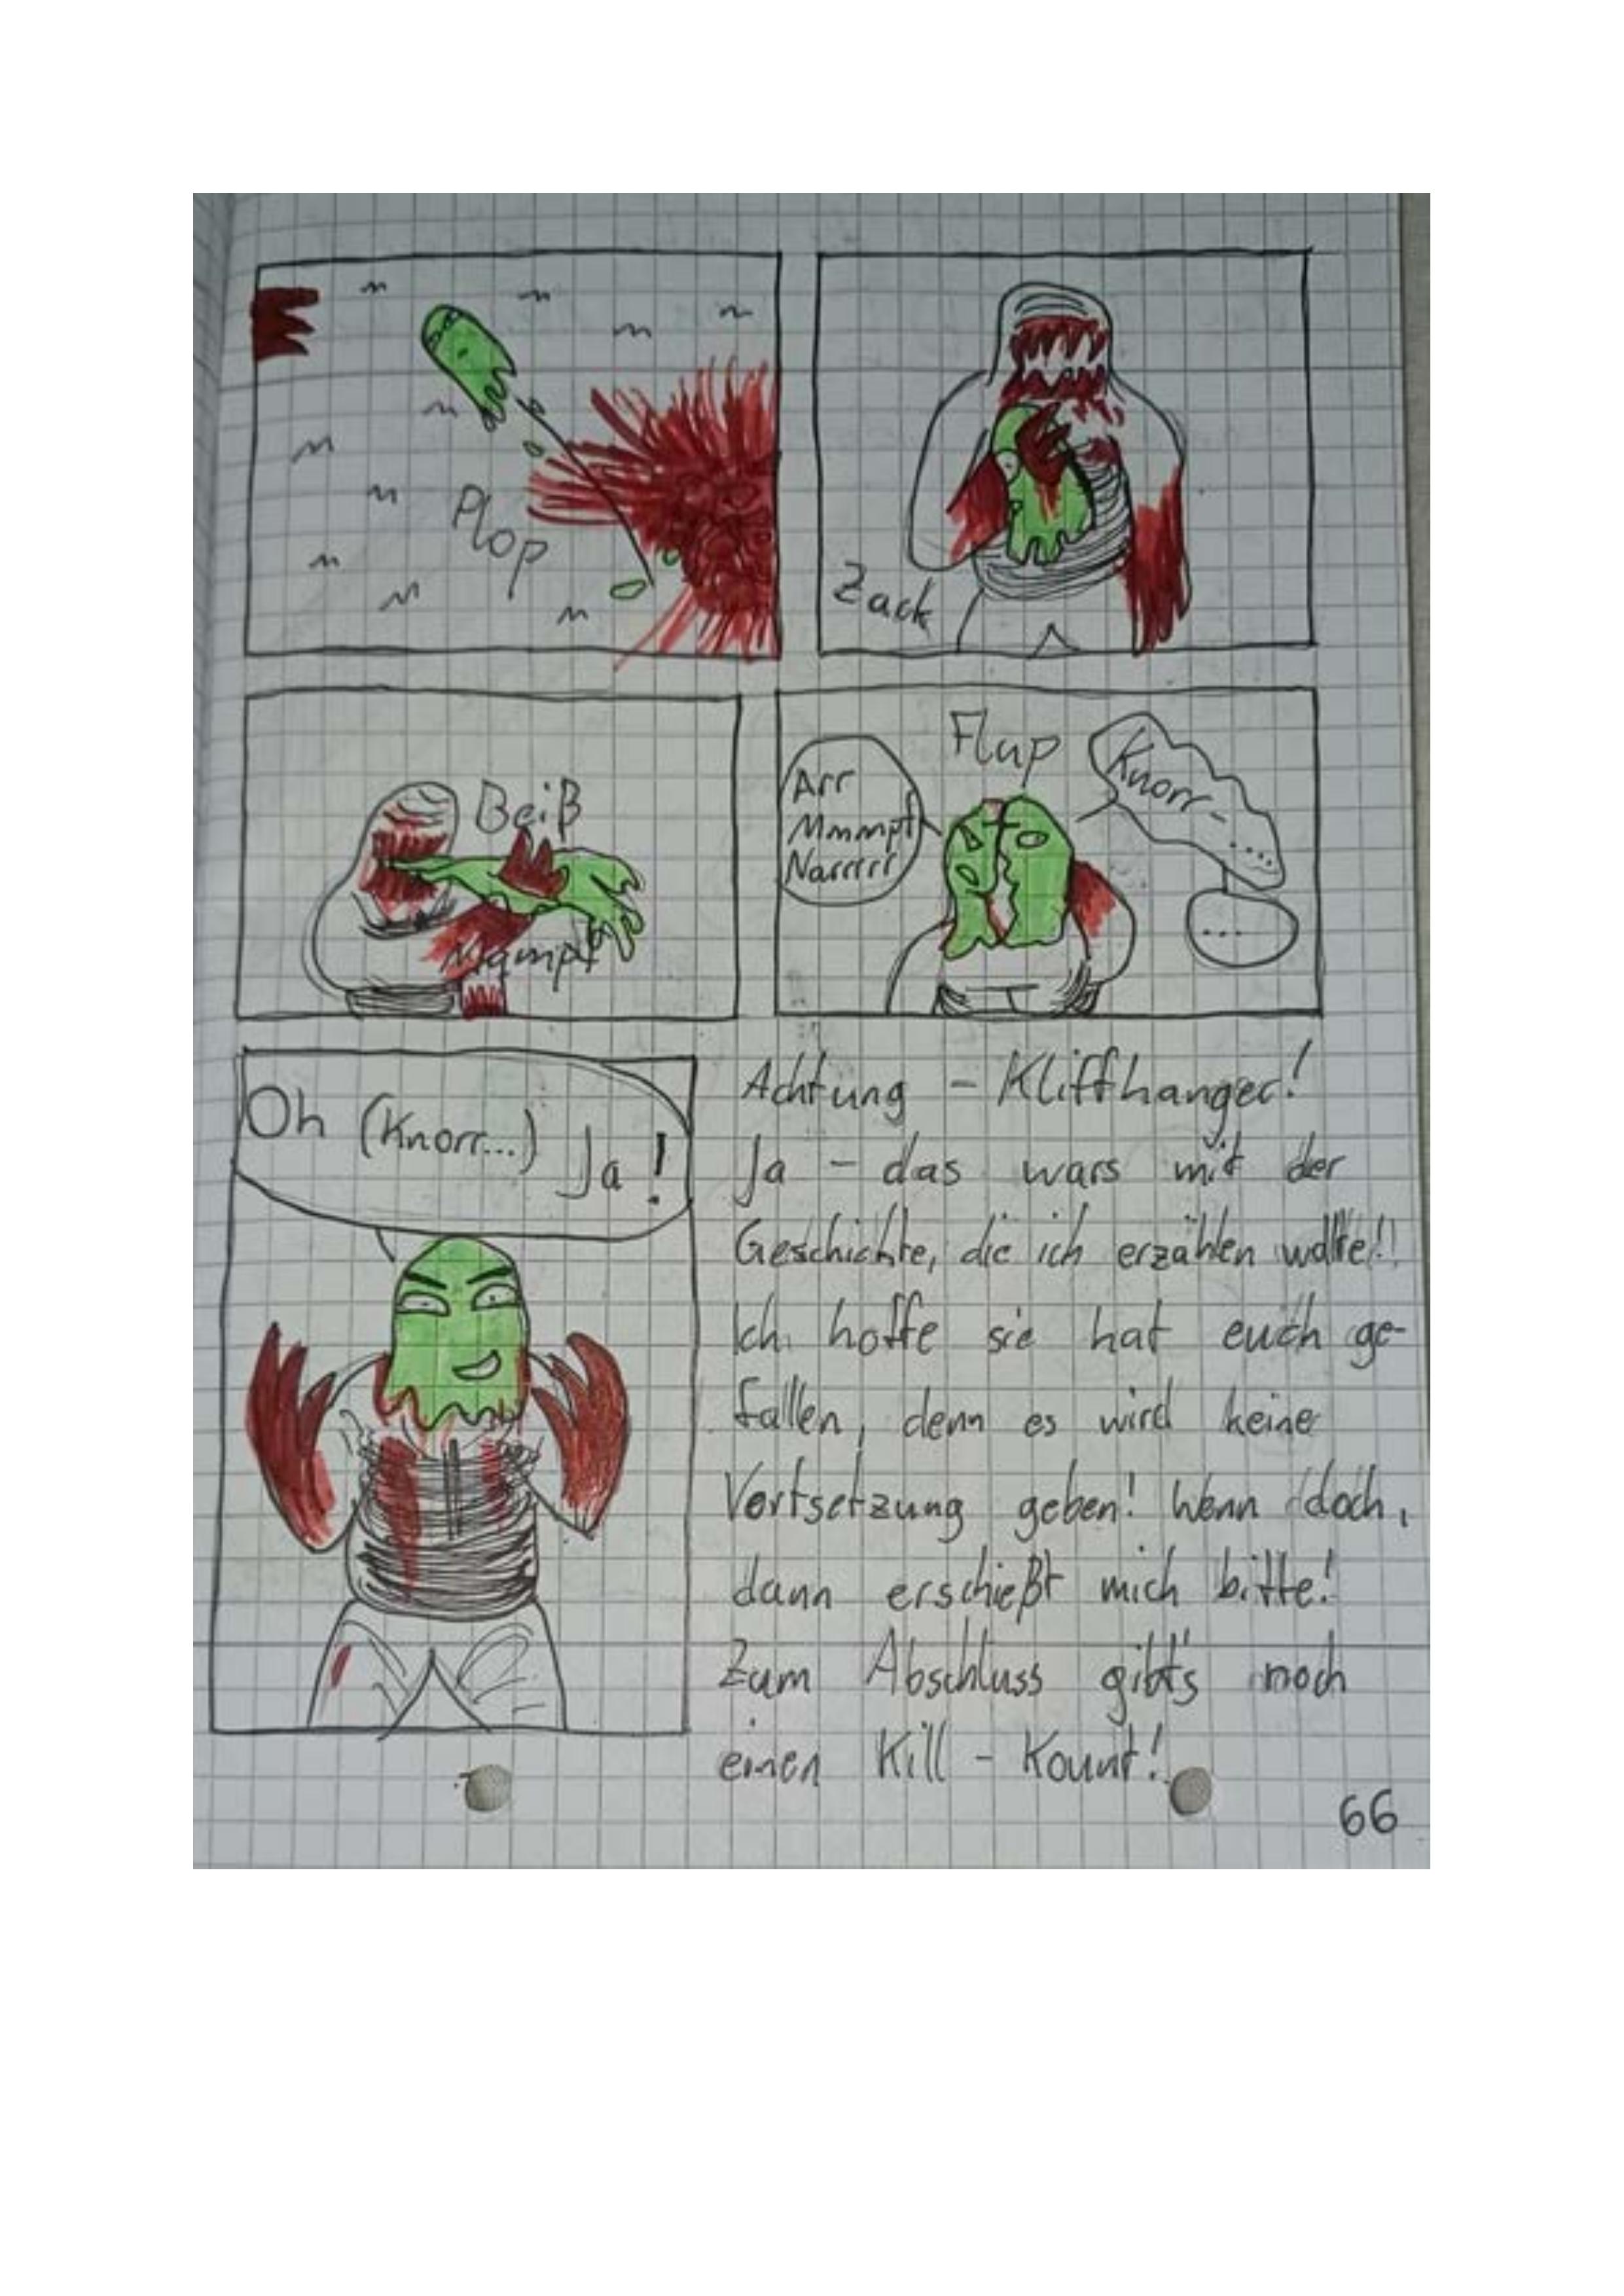 Plop
Zack
Beiß
Mampf
Flup
Arr
Mmmpf
Narrrrr
Knorr-
....
...
Oh (Knorr...) Ja!
Achtung - Kliffhanger!
Ja - das wars mit der
Geschichte, die ich erzählen wollte!!
Ich hoffe sie hat euch ge-
fallen, denn es wird keine
Vortsetzung geben! Wenn doch,
dann erschießt mich bitte!
Zum Abschluss gibt's noch
einen Kill - Kount!
66